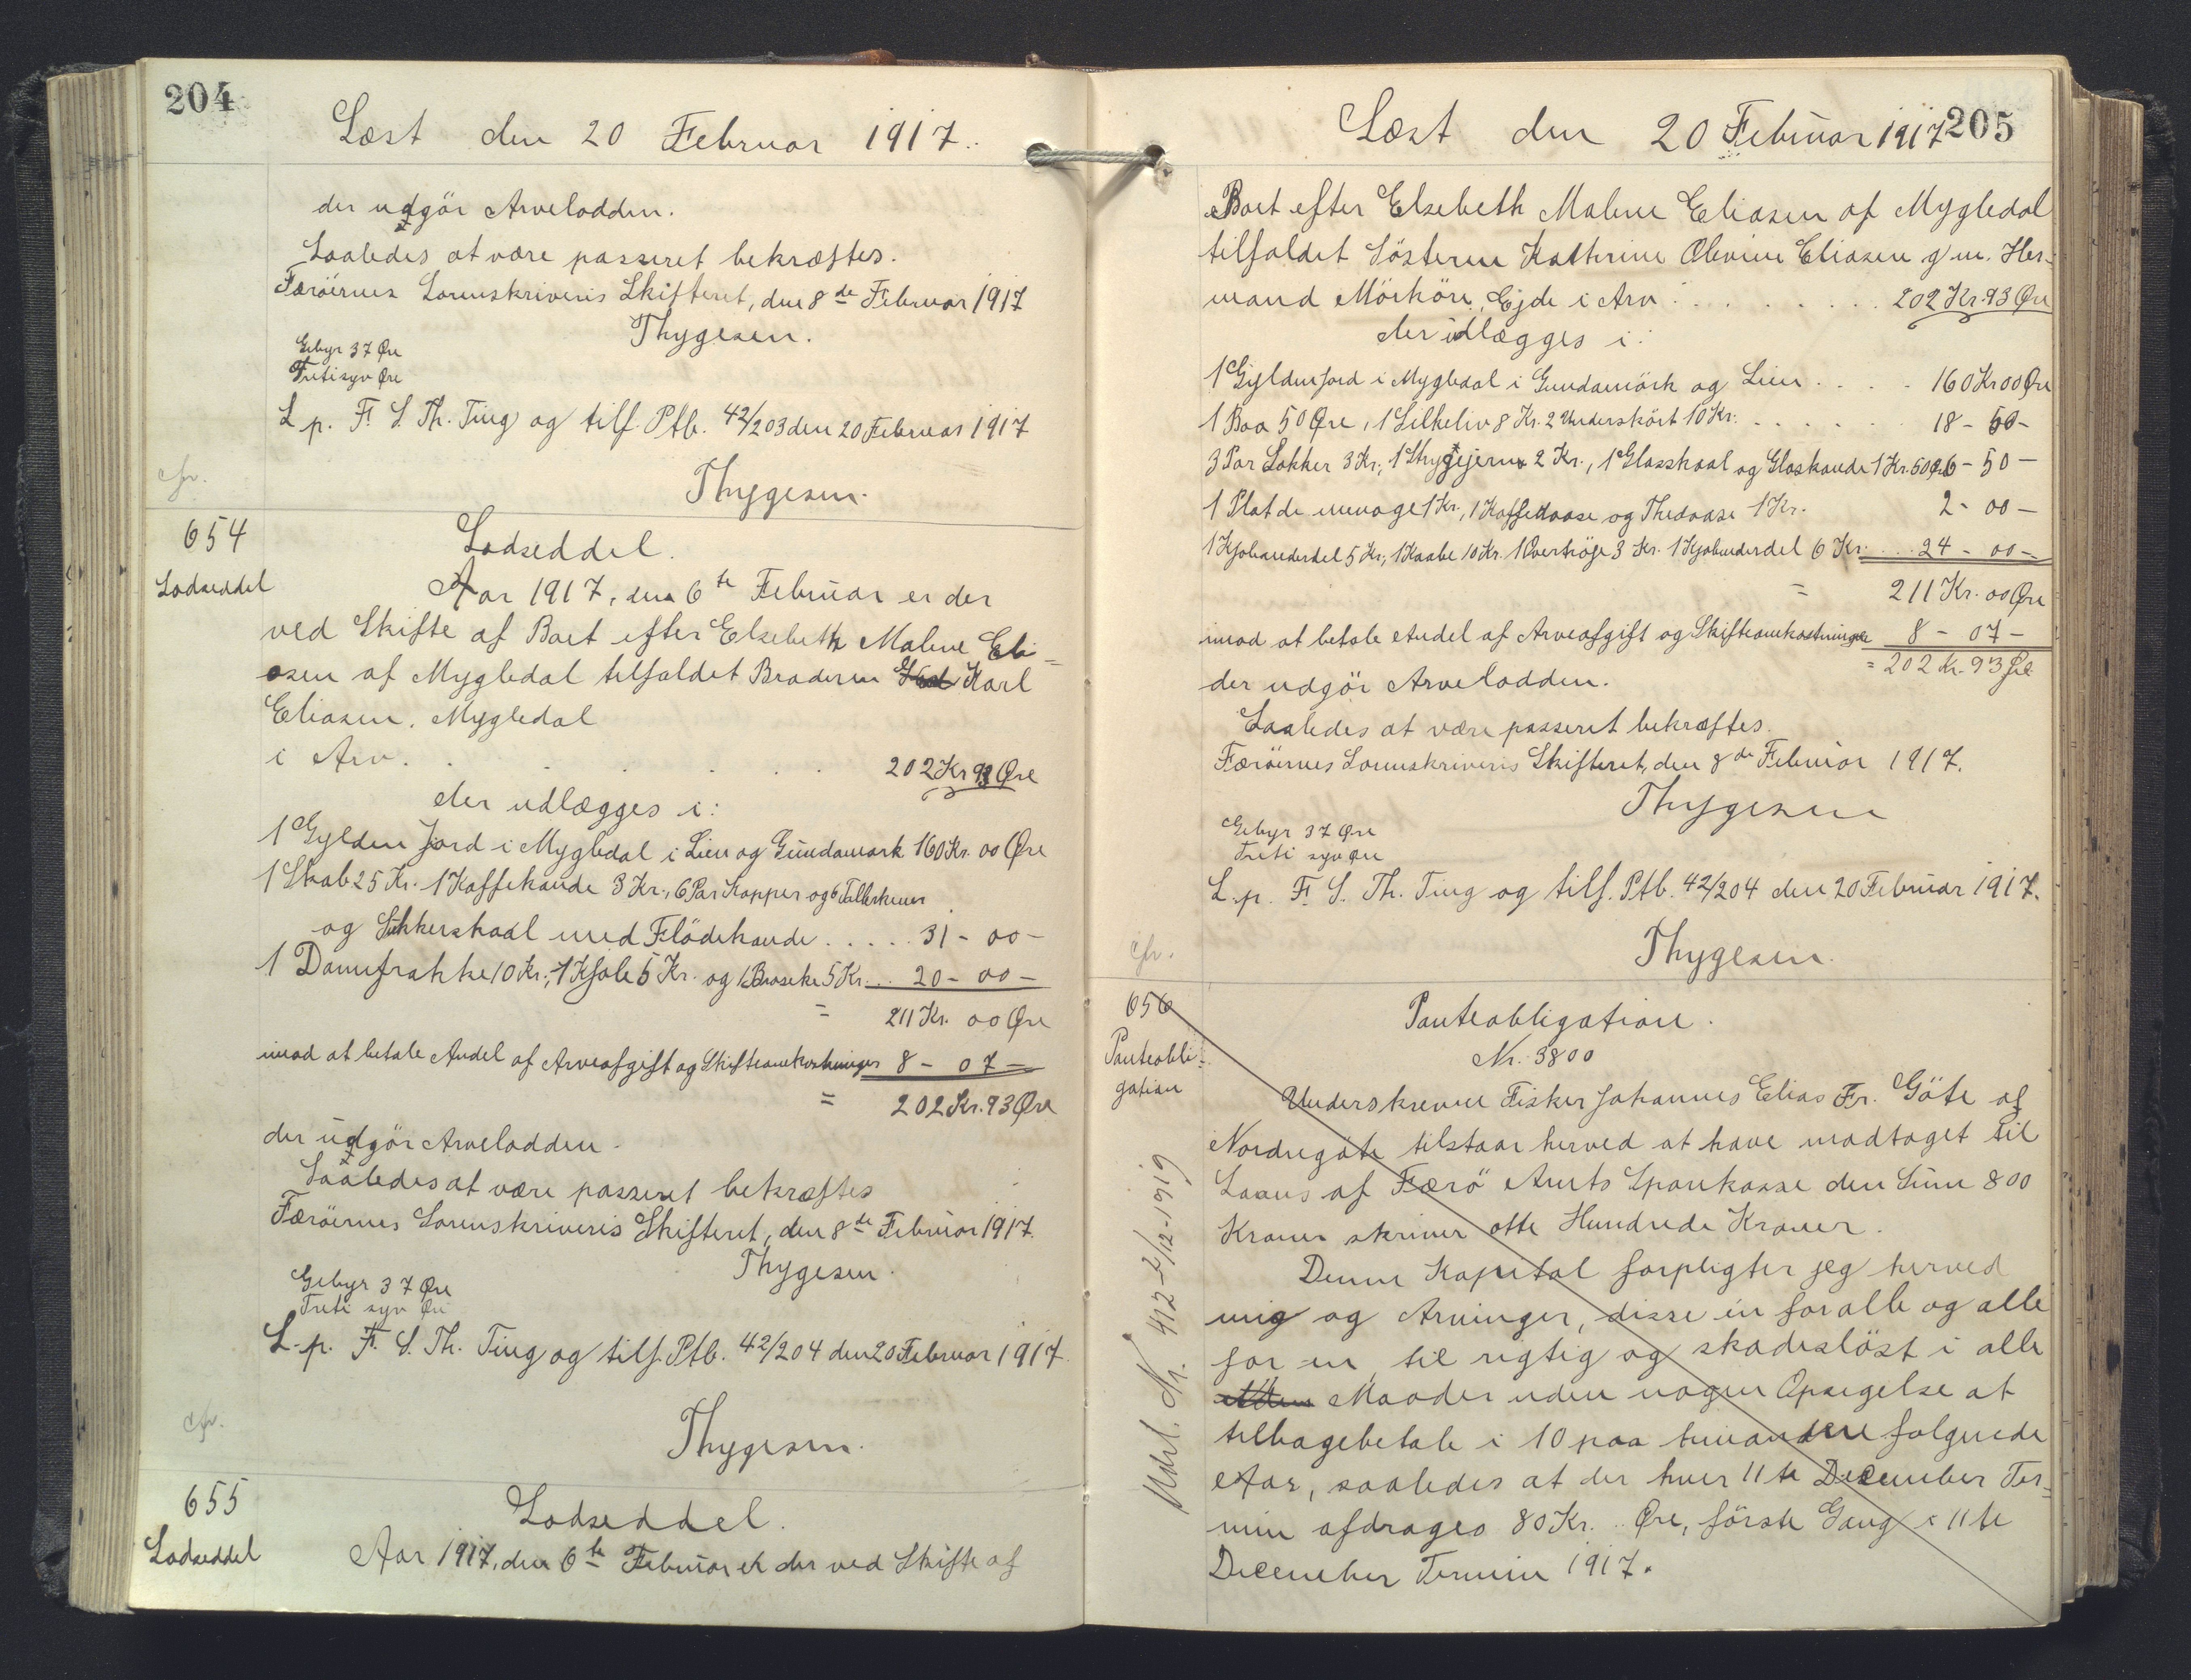 204
Læst den 20 Februar 1917.
der udgör Arvelodden.
Saaledes at være passeret bekræftes.
Færöernes Sorenskriveris Skifteret, den 8de Februar 1917
Thygesen.
Gebyr 37 Øre
Tretisyv Øre
L. p. F. S. Th. Ting og tilf. Ptb. 42/203 den 20 Februar 1917
Thygesen.
cfr.
654
Lodseddel
Lodseddel.
Aar 1917, den 6te Februar er der
ved Skifte af Boet efter Elsebeth Malene Eli=
asen af Mygledal tilfaldet Broderen Karl
Eliasen, Mygledal
i Arv. . . . . . 202 Kr 93 Øre
der udlægges i:
1 Gylden Jord i Mygledal i Lien og Gundamørk 160 Kr. 00 Øre
1 Skab 25 Kr. 1 Kaffekande 3 Kr., 6 Par Kopper og 6 Tallerkener
og Sukkerskaal med Flödekande . . . . . 31 - 00 -
1 Damefrakke 10 Kr., 1 Kjole 5 Kr. og 1 Broseke 5 Kr. . . 20 - 00 -
= 211 Kr. 00 Øre
imod at betale Andel af Arveafgift og Skifteomkostninger 8 - 07 -
= 202 Kr. 93 Øre
der udgör Arvelodden.
Saaledes at være passeret bekræftes
Færöernes Sorenskriveris Skifteret, den 8de Februar 1917.
Thygesen.
Gebyr 37 Øre
Treti syv Øre
L. p. F. S. Th. Ting og tilf. Ptb. 42/204 den 20 Februar 1917
Thygesen.
cfr.
655
Lodseddel
Lodseddel.
Aar 1917, den 6te Februar er der ved Skifte af
205
Læst den 20 Februar 1917
Boet efter Elsebeth Malene Eliasen af Mygledal
tilfaldet Sösteren Kathrine Olevine Eliasen g/m. Her=
mand Mörköre, Ejde i Arv . . . . . . . . 202 Kr. 93 Øre
der udlægges i:
1 Gylden Jord i Mygledal i Gundamörk og Lien . . . . 160 Kr 00 Øre
1 Boa 50 Øre, 1 Silkeliv 8 Kr. 2 Underskört 10 Kr. . . . . . 18 - 50 -
3 Par Sokker 3 Kr., 1 Strygejern 2 Kr., 1 Glasskaal og Glaskande 1 Kr. 50 Øre 6 - 50 -
1 Plat de menage 1 Kr., 1 Kaffedaase og Thedaase 1 Kr. 2 - 00 -
1 Kjolunderdel 5 Kr., 1 Kaabe 10 Kr. 1 Overtröje 3 Kr. 1 Kjolunderdel 6 Kr. . . 24 - 00 -
= 211 Kr. 00 Øre
imod at betale Andel af Arveafgift og Skifteomkostninger 8 - 07 -
= 202 Kr. 93 Øre
der udgör Arvelodden.
Saaledes at være passeret bekræftes.
Færöernes Sorenskriveris Skifteret, den 8de Februar 1917.
Thygesen
Gebyr 37 Øre
Treti syv Øre
L. p. F. S. Th. Ting og tilf. Ptb. 42/204 den 20 Februar 1917.
Thygesen.
cfr.
656
Panteobli=
gation
Panteobligation.
Nr. 3800
Underskrevne Fisker Johannes Elias Fr. Göte af
Nordregöte tilstaar herved at have modtaget til
Laans af Færö Amts Sparekasse den Sum 800
Kroner skriver otte Hundrede Kroner.
Denne Kapital forpligter jeg herved
mig og Arvinger, disse en for alle og alle
for en, til rigtig og skadeslöst i alle
Maader uden nogen Opsigelse at
tilbagebetale i 10 paa hinanden følgende
Aar, saaledes at der hver 11te December Ter=
min afdrages 80 Kr. .. Øre, förste Gang i 11te
December Termin 1917.
Udsl. Nr. 412 - 2/12-1919